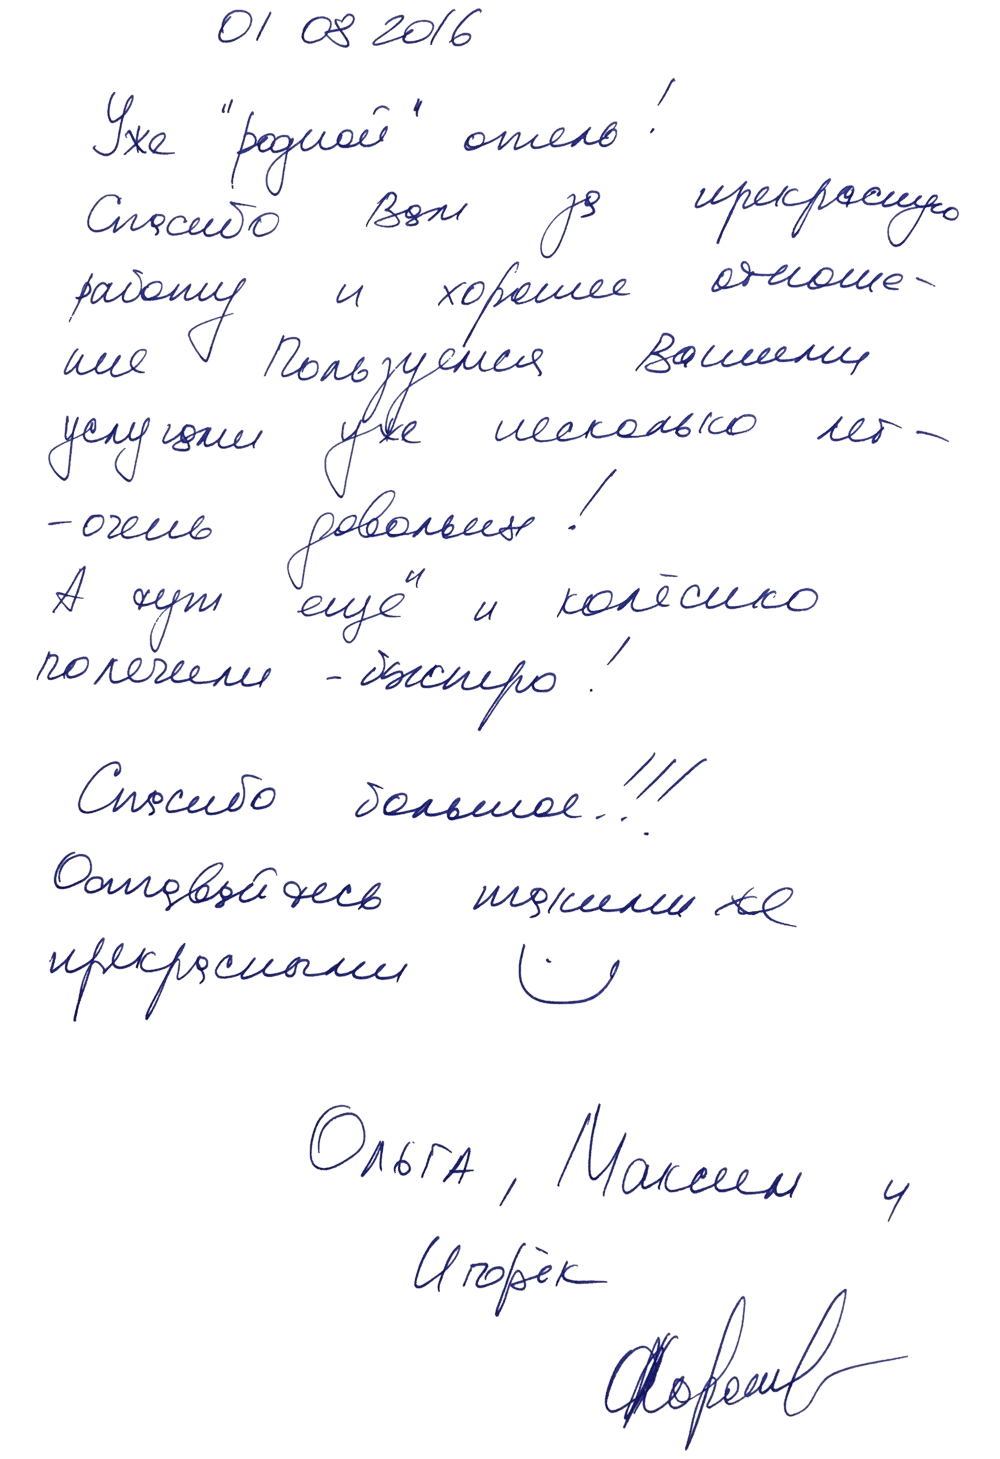 01 08 2016
Уже "родной" отель!
Спасибо Вам за прекрасную
работу и хорошее отноше-
ние Пользуемся Вашими
услугами уже несколько лет -
- очень довольны!
А тут ещё и колёсико
полечили - быстро!
Спасибо большое!!!
Оставайтесь такими же
прекрасными
Ольга, Максим и
Игорёк